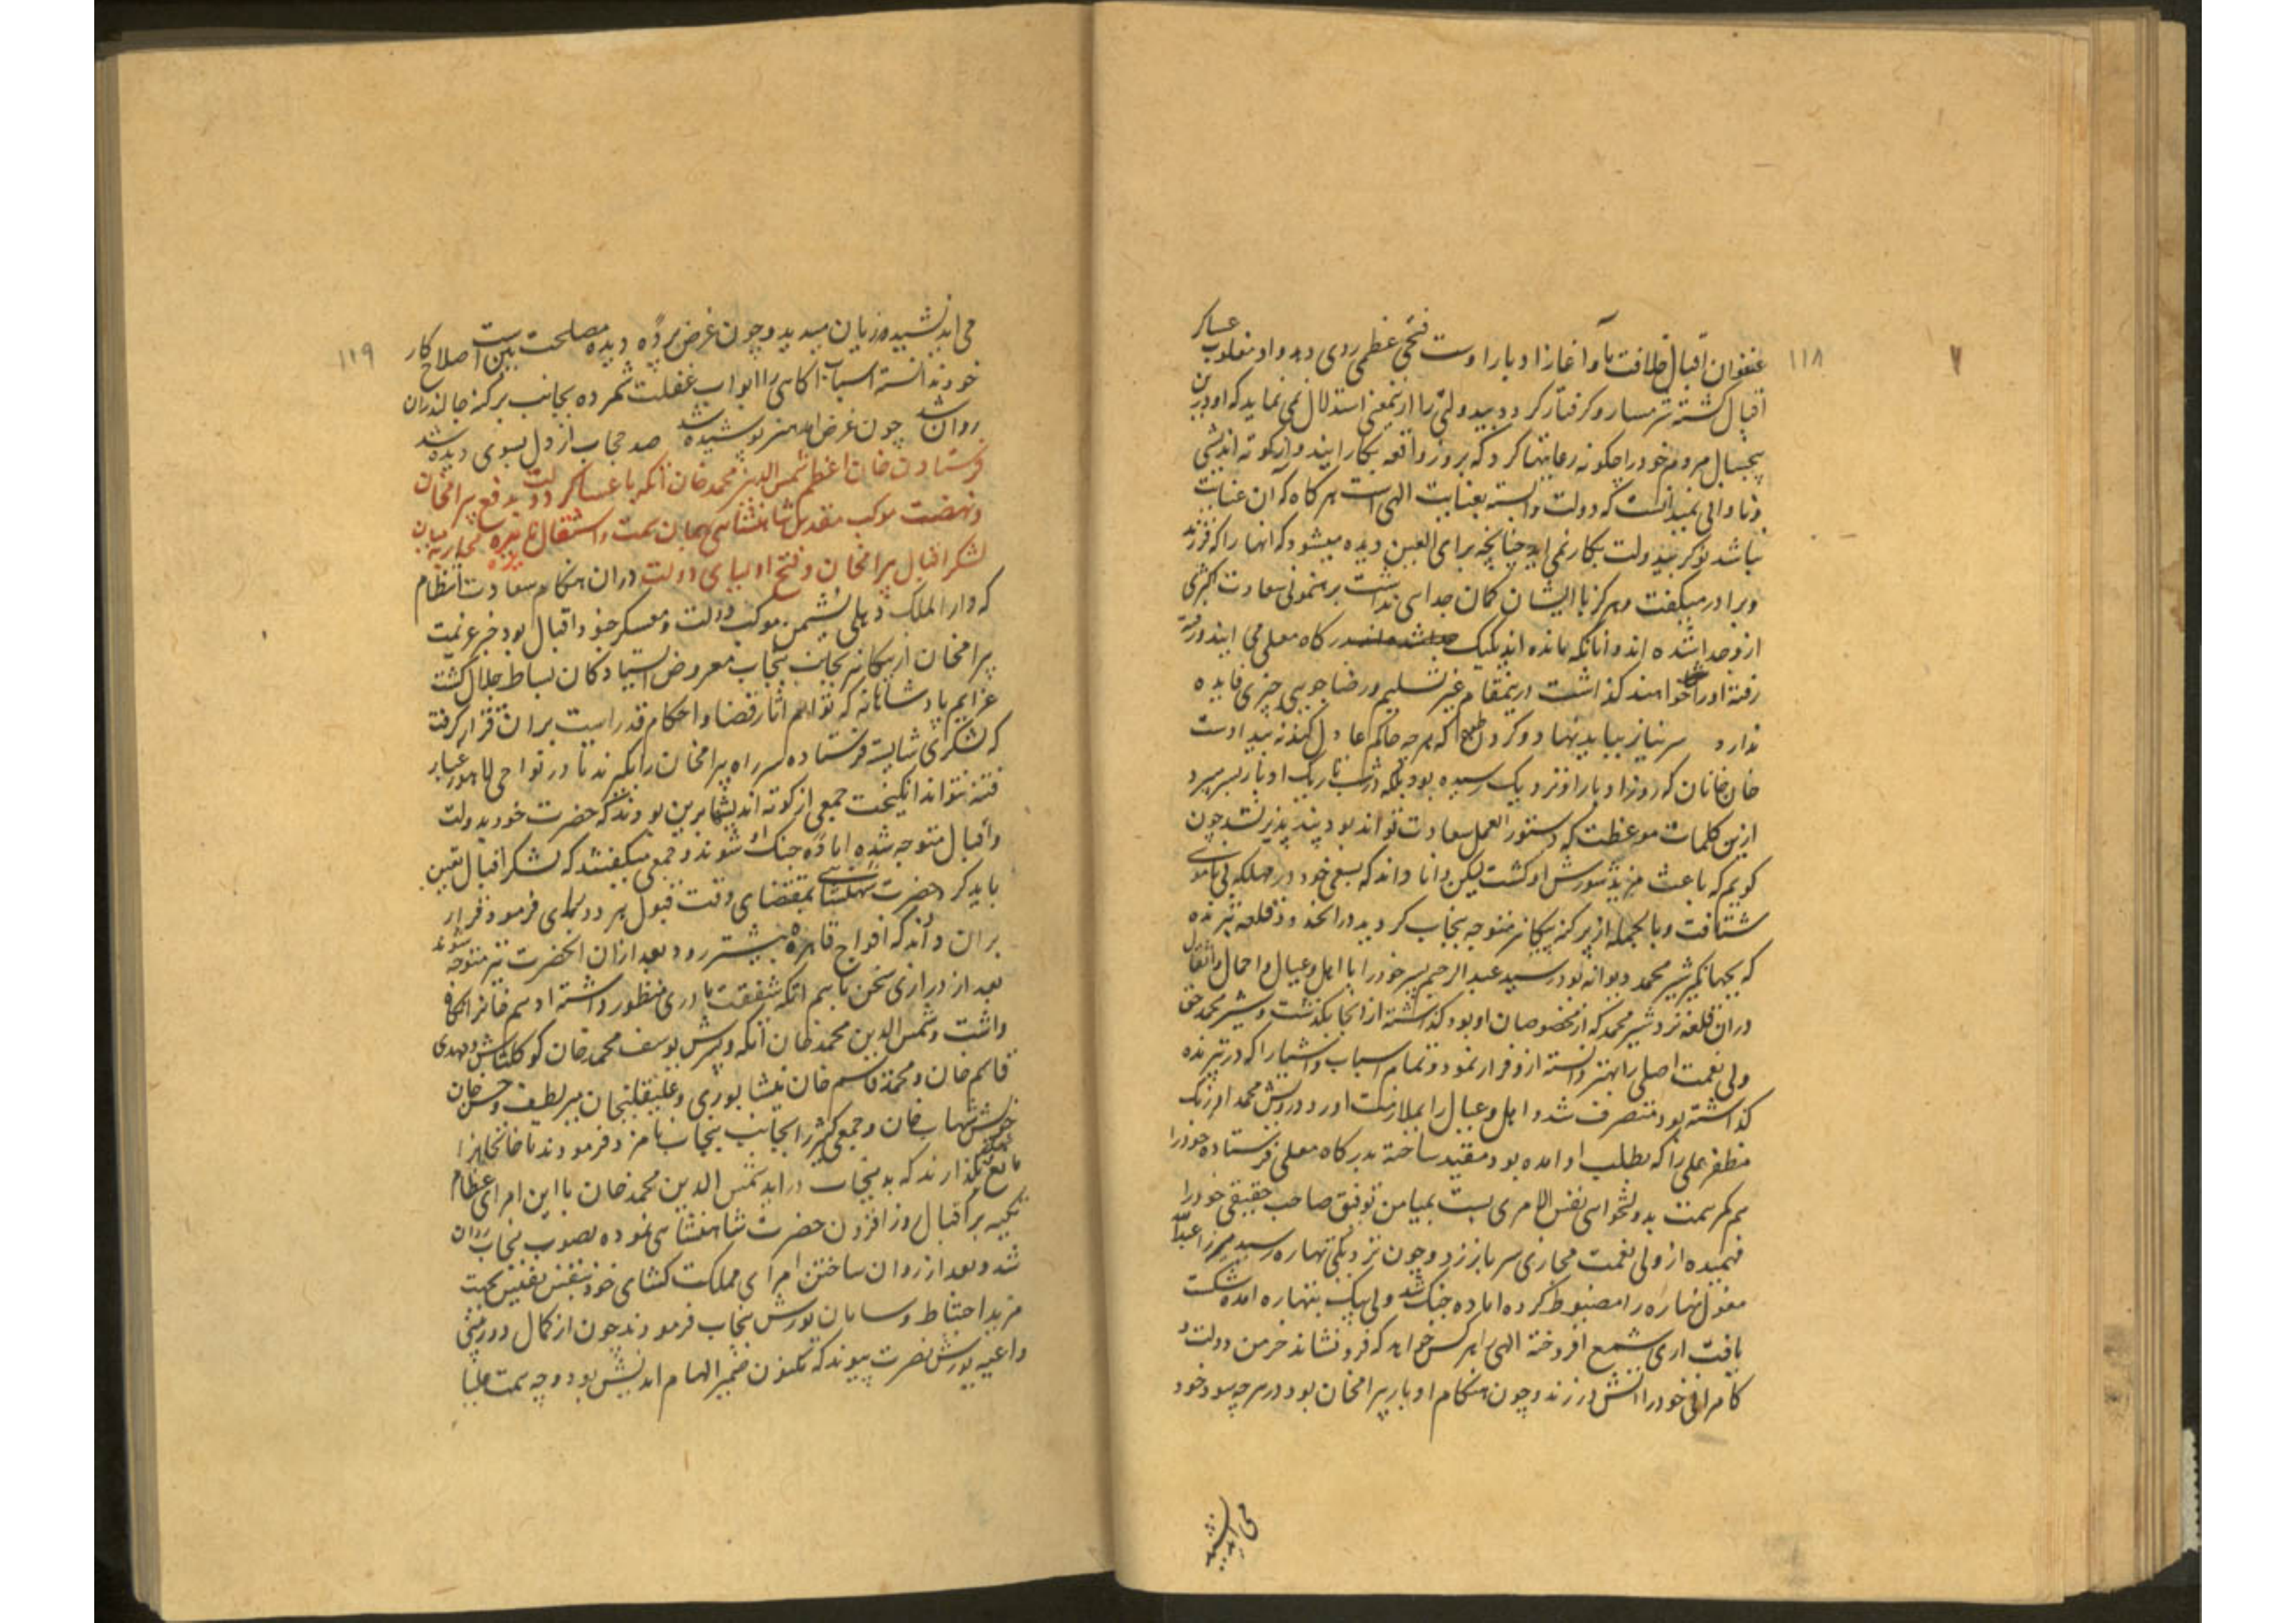 ۱۱۸
عنفوان اقبال خلافت ما و اغاز ادبار اوست فتحی عظمی روی دهد و او مغلوب عساکر
اقبال گشته شرمسار و گرفتار گردد بیدولتی را ازینمعنی استدلال نمی نماید که او درین
چپسال مردم خود را چکونه رعایتها کرد که بروز واقعه بکار ایند و از کوته اندیشی
و نادانی نمیدانست که دولت وابسته بعنایت الهی است هر کاه که ان عنایت
نباشد نوکر بیدولت بکار نمی اید چنانچه برای العین دیده میشود که انها را که فرزند
و برادر میکفت و هرکز با ایشان کمان جدای نداشت برهنمونی سعادت کبری
ازو جدا شده اند و انانکه مانده اند یکیک درکاه معلی می ایند و رفته
رفته او را خواهند کذاشت درینمقام غیر تسلیم و رضا جویی چیزی فایده
ندارد سر نیاز بباید نهاد و کردن طوع که هرچه حاکم عادل کند نه بیدادست
خان خانان که روز ادبار او نزدیک رسیده بود بلکه در شب تاریک ادبار بسر میبرد
ازین کلمات موعظت که دستور العمل سعادت تواند بود پند پذیر نشد چون
کویم که باعث مزید شورش او کشت لیکن دانا داند که بسعی خود در مهلکه بی ناموسی
شتافت و بالجمله از پرکنه بیکانیر متوجه پنجاب کردید در انحدود قلعه تبرنده
که بجهانکیر شیر محمد دیوانه بود رسید عبد الرحیم پسر خود را با اهل و عیال و احمال و اثقال
دران قلعه نزد شیر محمد که از مخصوصان او بود کذاشته از انجا بکذشت و شیر محمد حق
ولی نعمت اصلی را بهتر دانسته ازو فرار نمود و تمام اسباب و اشیا را که در تبرنده
کذاشته بود متصرف شد و اهل و عیال را بملازمت اورد و درویش محمد اوزبک
مظفر علی را که بطلب او امده بود مقید ساخته بدرکاه معلی فرستاده خود را
هم کمر همت بدولتخواهی نفس الامری بست بمیامن توفیق صاحب حقیقی خود را
فهمیده از ولی نعمت مجازی سر باز زد و چون نزدیکی تهاره رسید میرزا عبد الله
مغول تهاره را مضبوط کرده اماده جنک شد ولی بیک بتهاره امده شکست
یافت اری شمع افروخته الهی را هر کس خواهد که فرو نشاند خرمن دولت و
کامرانی خود را اتش در زند و چون هنکام ادبار بیرامخان بود در هرچه سود خود
می اندیشید
۱۱۹
می اندیشیده زیان میدید و چون غرض پرده دیده مصلحت بین است اصلاح کار
خود ندانسته اسباب اکاهی را ابواب غفلت شمرده بجانب پرکنه جالندران
روان شد چون غرض امد هنر پوشیده شد صد حجاب از دل بسوی دیده شد
فرستادن خان اعظم شمس الدین محمد خان اتکه با عساکر دولت بدفع بیرامخان
و نهضت موکب مقدس شاهنشاهی بهمان سمت و اشتعال نایره محاربه میان
لشکر اقبال بیرامخان و فتح اولیای دولت دران هنکام سعادت انتظام
که دار الملک دهلی نشیمن موکب دولت و معسکر جنود اقبال بود خبر عزیمت
بیرامخان از بیکانیر بجانب پنجاب معروض استادکان بساط جلال کشت
عزایم پادشاهانه که توام اثار قضا و احکام قدر است بران قرار کرفت
که لشکری شایسته فرستاده سر راه بیرامخان را بکیرند تا در نواحی لاهور غبار
فتنه نتواند انکیخت جمعی از کوته اندیشها برین بودند که حضرت خود بدولت
و اقبال متوجه شده اماده جنک او شوند و جمعی میکفتند که لشکر اقبال تعین
باید کرد حضرت شاهنشاهی بمقتضای وقت قبول هر دو رای فرمود قرار
بران دادند که افواج قاهره پیشتر رود بعد ازان انحضرت نیز متوجه شوند
بعد از درازی سخن ماهم اتکه شفقت مادری منظور داشته ادهم خانرا نکاه
داشت و شمس الدین محمد خان اتکه و پسرش یوسف محمد خان کوکلتاش و مهدی
قاسم خان و محمد قاسم خان نیشابوری و علیقلیخان میر لطیف و حسن خان
خویش شهاب خان و جمعی کثیر را بجانب پنجاب نامزد فرمودند تا خانخانرا
مانع نکذارند که به پنجاب دراید شمس الدین محمد خان با این امرای عظام
تکیه بر اقبال روز افزون حضرت شاهنشاهی نموده بصوب پنجاب روان
شد و بعد از روان ساختن امرای مملکت کشای خود بنفس نفیس بجهت
مزید احتیاط و سامان یورش پنجاب فرمودند چون از کمال دوربینی
داعیه یورش نصرت پیوند که مکنون ضمیر الهام اندیش بود وجه همت علیا